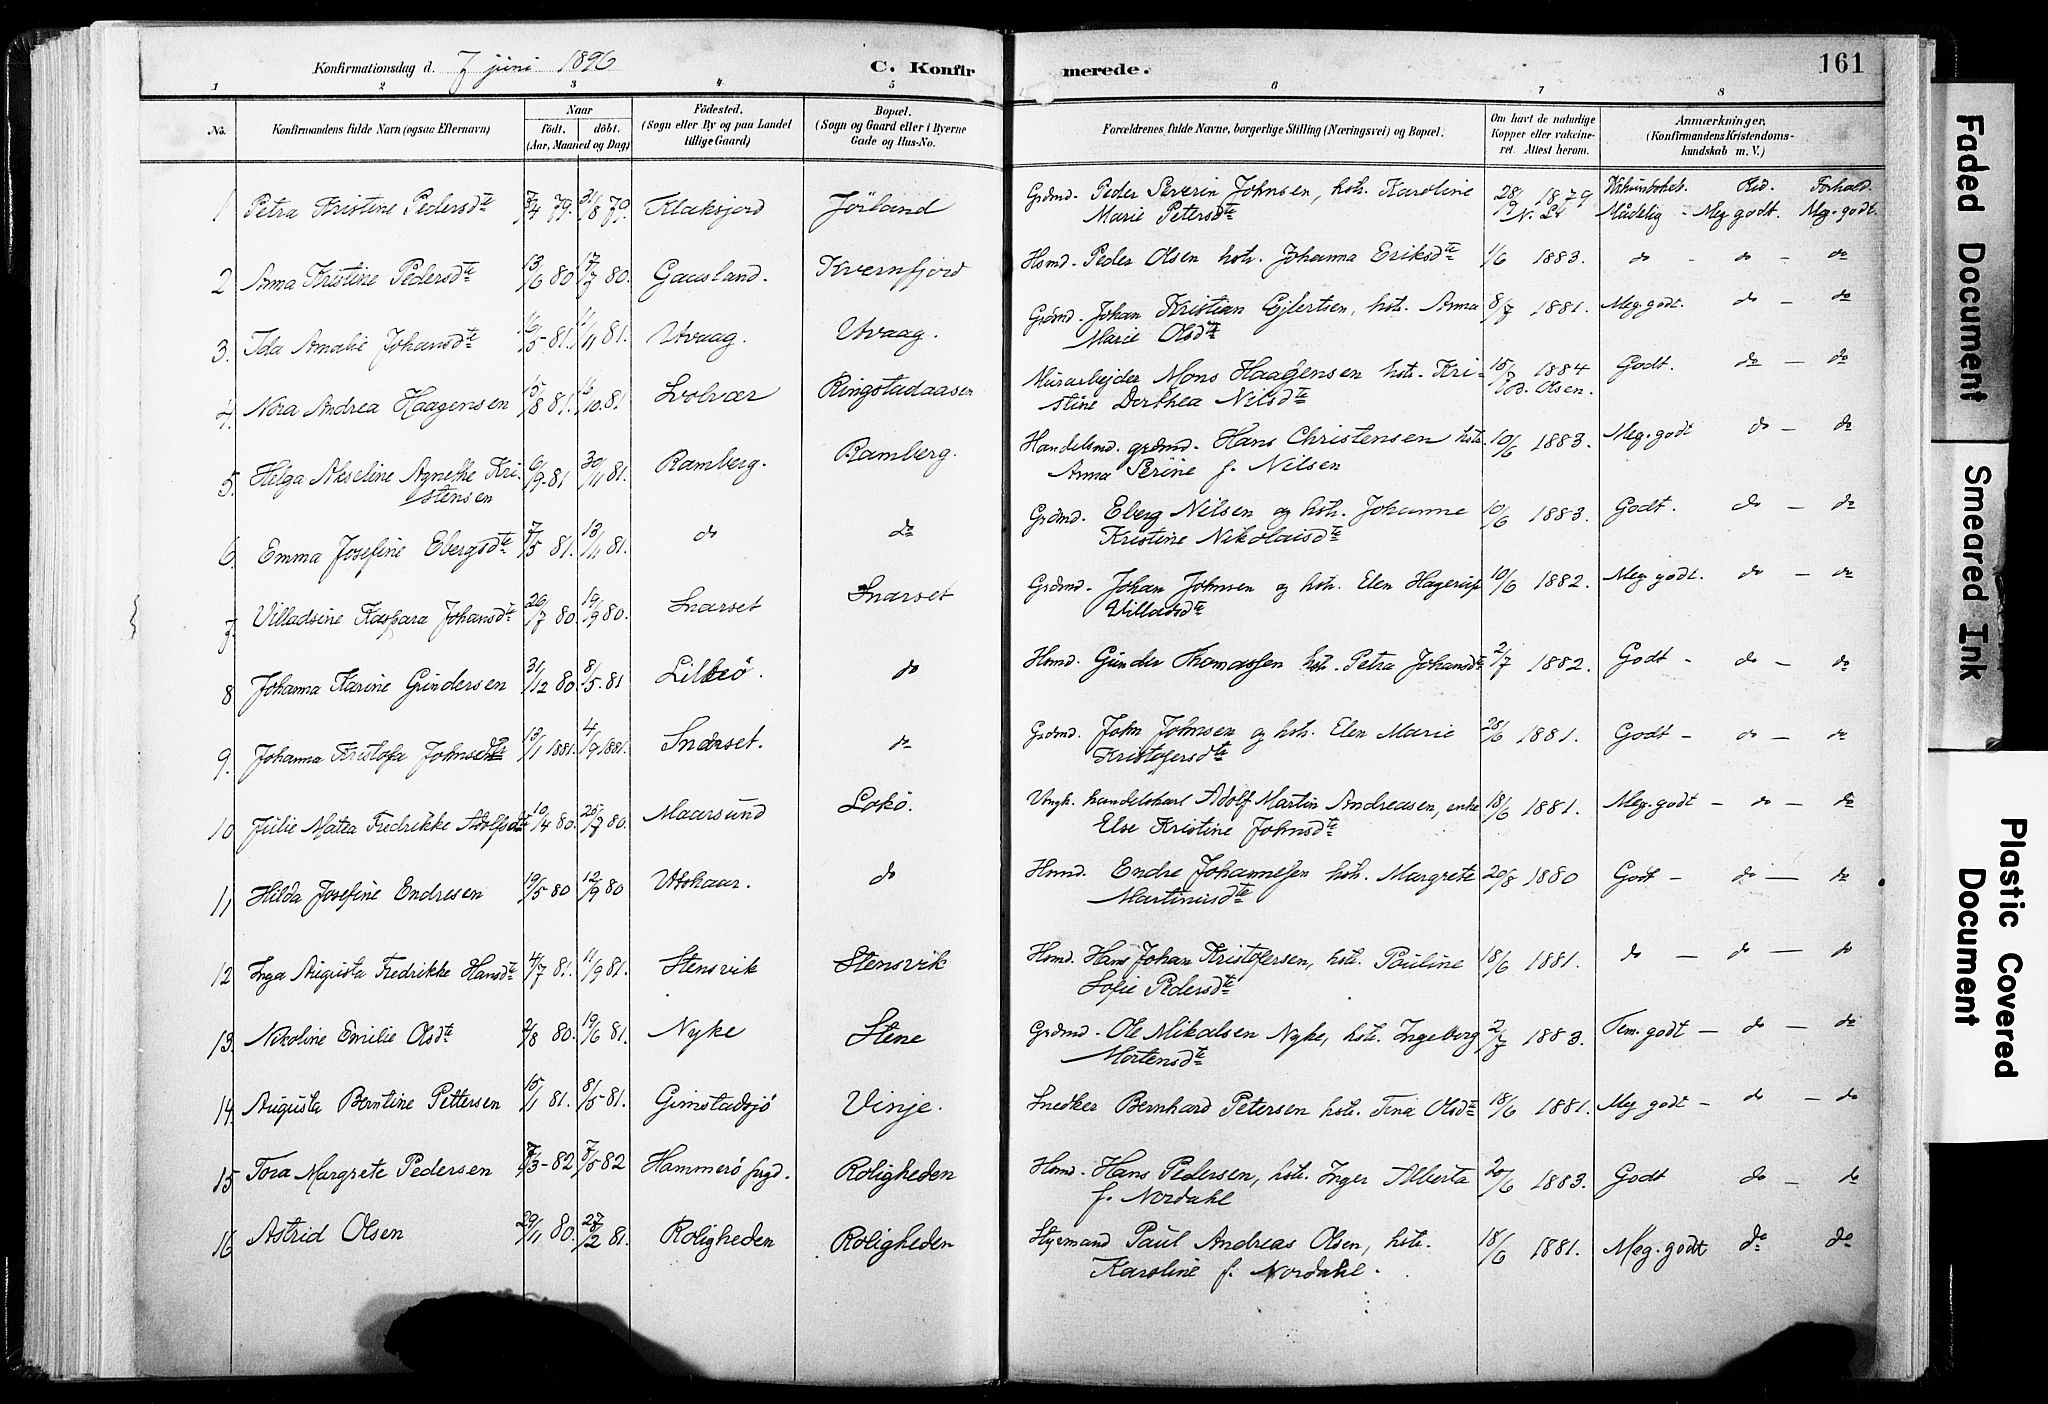 Konfirmationsdag d. 7 juni 1896
C. Konfirmerede.
161
1 2 3 4 5 6 7 8
No. Konfirmandens fulde Navn (ogsaa Efternavn) Naar født. døbt. (Aar, Maaned og Dag) Fødested. (Sogn eller By og paa Landet tillige Gaard) Bopæl. (Sogn og Gaard eller i Byerne Gade og Hus-No. Forældrenes fulde Navne, borgerlige Stilling (Næringsvei) og Bopæl. Om havt de naturlige Kopper eller vakcineret. Attest herom. Anmærkninger, (Konfirmandens Kristendomskundskab m. V.)
1 Petra Kristine Pedersdte 3/4 79. 31/8 79. Klaksjord Jørland Grdmd. Peder Severin Johnsen, hstr. Karoline 28/9 1879
Marie Petersdte Mådelig - Meg godt. Meg. godt.
2 Anna Kristine Pedersdte 13/6 80 17/7 80. Gaasland. Kvernfjord Hsmd. Peder Olsen hstr. Johanna Eriksdte 1/6 1883. do - do - do
3. Ida Amalie Johansdte /5 81. /11 81. Utvaag. Utvaag. Grdmd. Johan Kristian Ejlertsen, hstr. Anna 8/7 1881. Meg. godt. do - do
Marie Olsdte
4. Nora Andrea Haagensen 15/8 81. 16/10. 81 Svolvær Ringstadaasen Murarbejder Mons Haagensen hstr. Kri- 15/7 1884 Godt. do - do
stine Dorthea Nilsdte Olsen.
5. Helga Akseline Agnethe Kri- 6/9. 81 30/11 81. Ramberg. Ramberg. Handelsmd. grdmd. Hans Christensen hstr. 10/6 1883. Meg. godt do - do
stensen Anna Serine f. Nilsen
6. Emma Josefine Ebergsdte 7/5 81. 13/11 81. do do Grdmd. Eberg Nilsen og hstr. Johanne 10/6 1883. Godt. do - do
Kristine Nikolaisdte
7. Villadsine Kaspara Johansdte 26/7 80. 19/9 80. Snarset Snarset Grdmd. Johan Johnsen og hstr. Elen Hagerup 10/6 1882. Meg. godt. do - do
Villadsdte
8 Johanna Karine Gundersen 31/12 80 8/5. 81 Lilleø. do Hsmd. Gunder Thomassen hstr. Petra Johansdte 2/7 1882. Godt - do - do
9. Johanna Kristofa Johnsdte 13/1 1881. 4/9 1881. Snarset. do Grdmd. John Johnsen og hstr. Elen Marie 28/6 1881. Godt - do - do
Kristofersdte
10 Julie Matea Fredrikke Adolfsdte 10/4 80. 25/7 80. Maarsund Lokø. Ungk. handelskarl Adolf Martin Andreasen, enke 18/6 1881. Meg. godt - do - do
Else Kristine Johnsdte
11 Hilda Josefine Endresen 19/5 80 12/9 80 Utskaar. do Hsmd. Endre Johannesen hstr. Margrete 20/8 1880 Godt - do - do
Martinusdte
12 Inga Augusta Fredrikke Hansdte 4/7 81. 11/9 81. Stensvik Stensvik Hsmd. Hans Johan Kristofersen, hstr. Pauline 18/6 1881. do - do - do
Sofie Pedersdte
13. Nikoline Emilie Olsdte 2/8 80. 19/6 81. Nyke Stene Grdmd. Ole Mikalsen Nyke, hstr. Ingeborg 2/7 1883. Tem. godt - do - do
Mortensdte
14. Augusta Berntine Pettersen 15/1 81. 8/5 81. Gimstadsjø Vinje. Snedker Bernhard Petersen hstr. Tina Olsdte 18/6 1881. Meg godt - do - do
15 Tora Margrete Pedersen 7/3 - 82 7/5 82 Hammerø Roligheden Hsmd. Hans Pedersen, hstr. Inger Alberta 20/6 1883. Godt do - do
f. Nordahl
16 Astrid Olsen 29/11 80. 27/2 81. Roligheden Roligheden Styrmand Paul Andreas Olsen, hstr. 18/6 1881. Meg. godt do do
Karoline f. Nordahl.
Faded Document
Smeared Ink
Plastic Covered Document